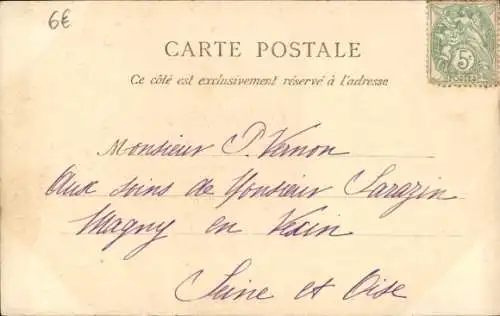 6€
CARTE POSTALE
Ce côté est exclusivement réservé à l'adresse
5c
POSTES
Monsieur P. Vernon
Aux soins de Monsieur Sarazin
Magny en Vexin
Seine et Oise